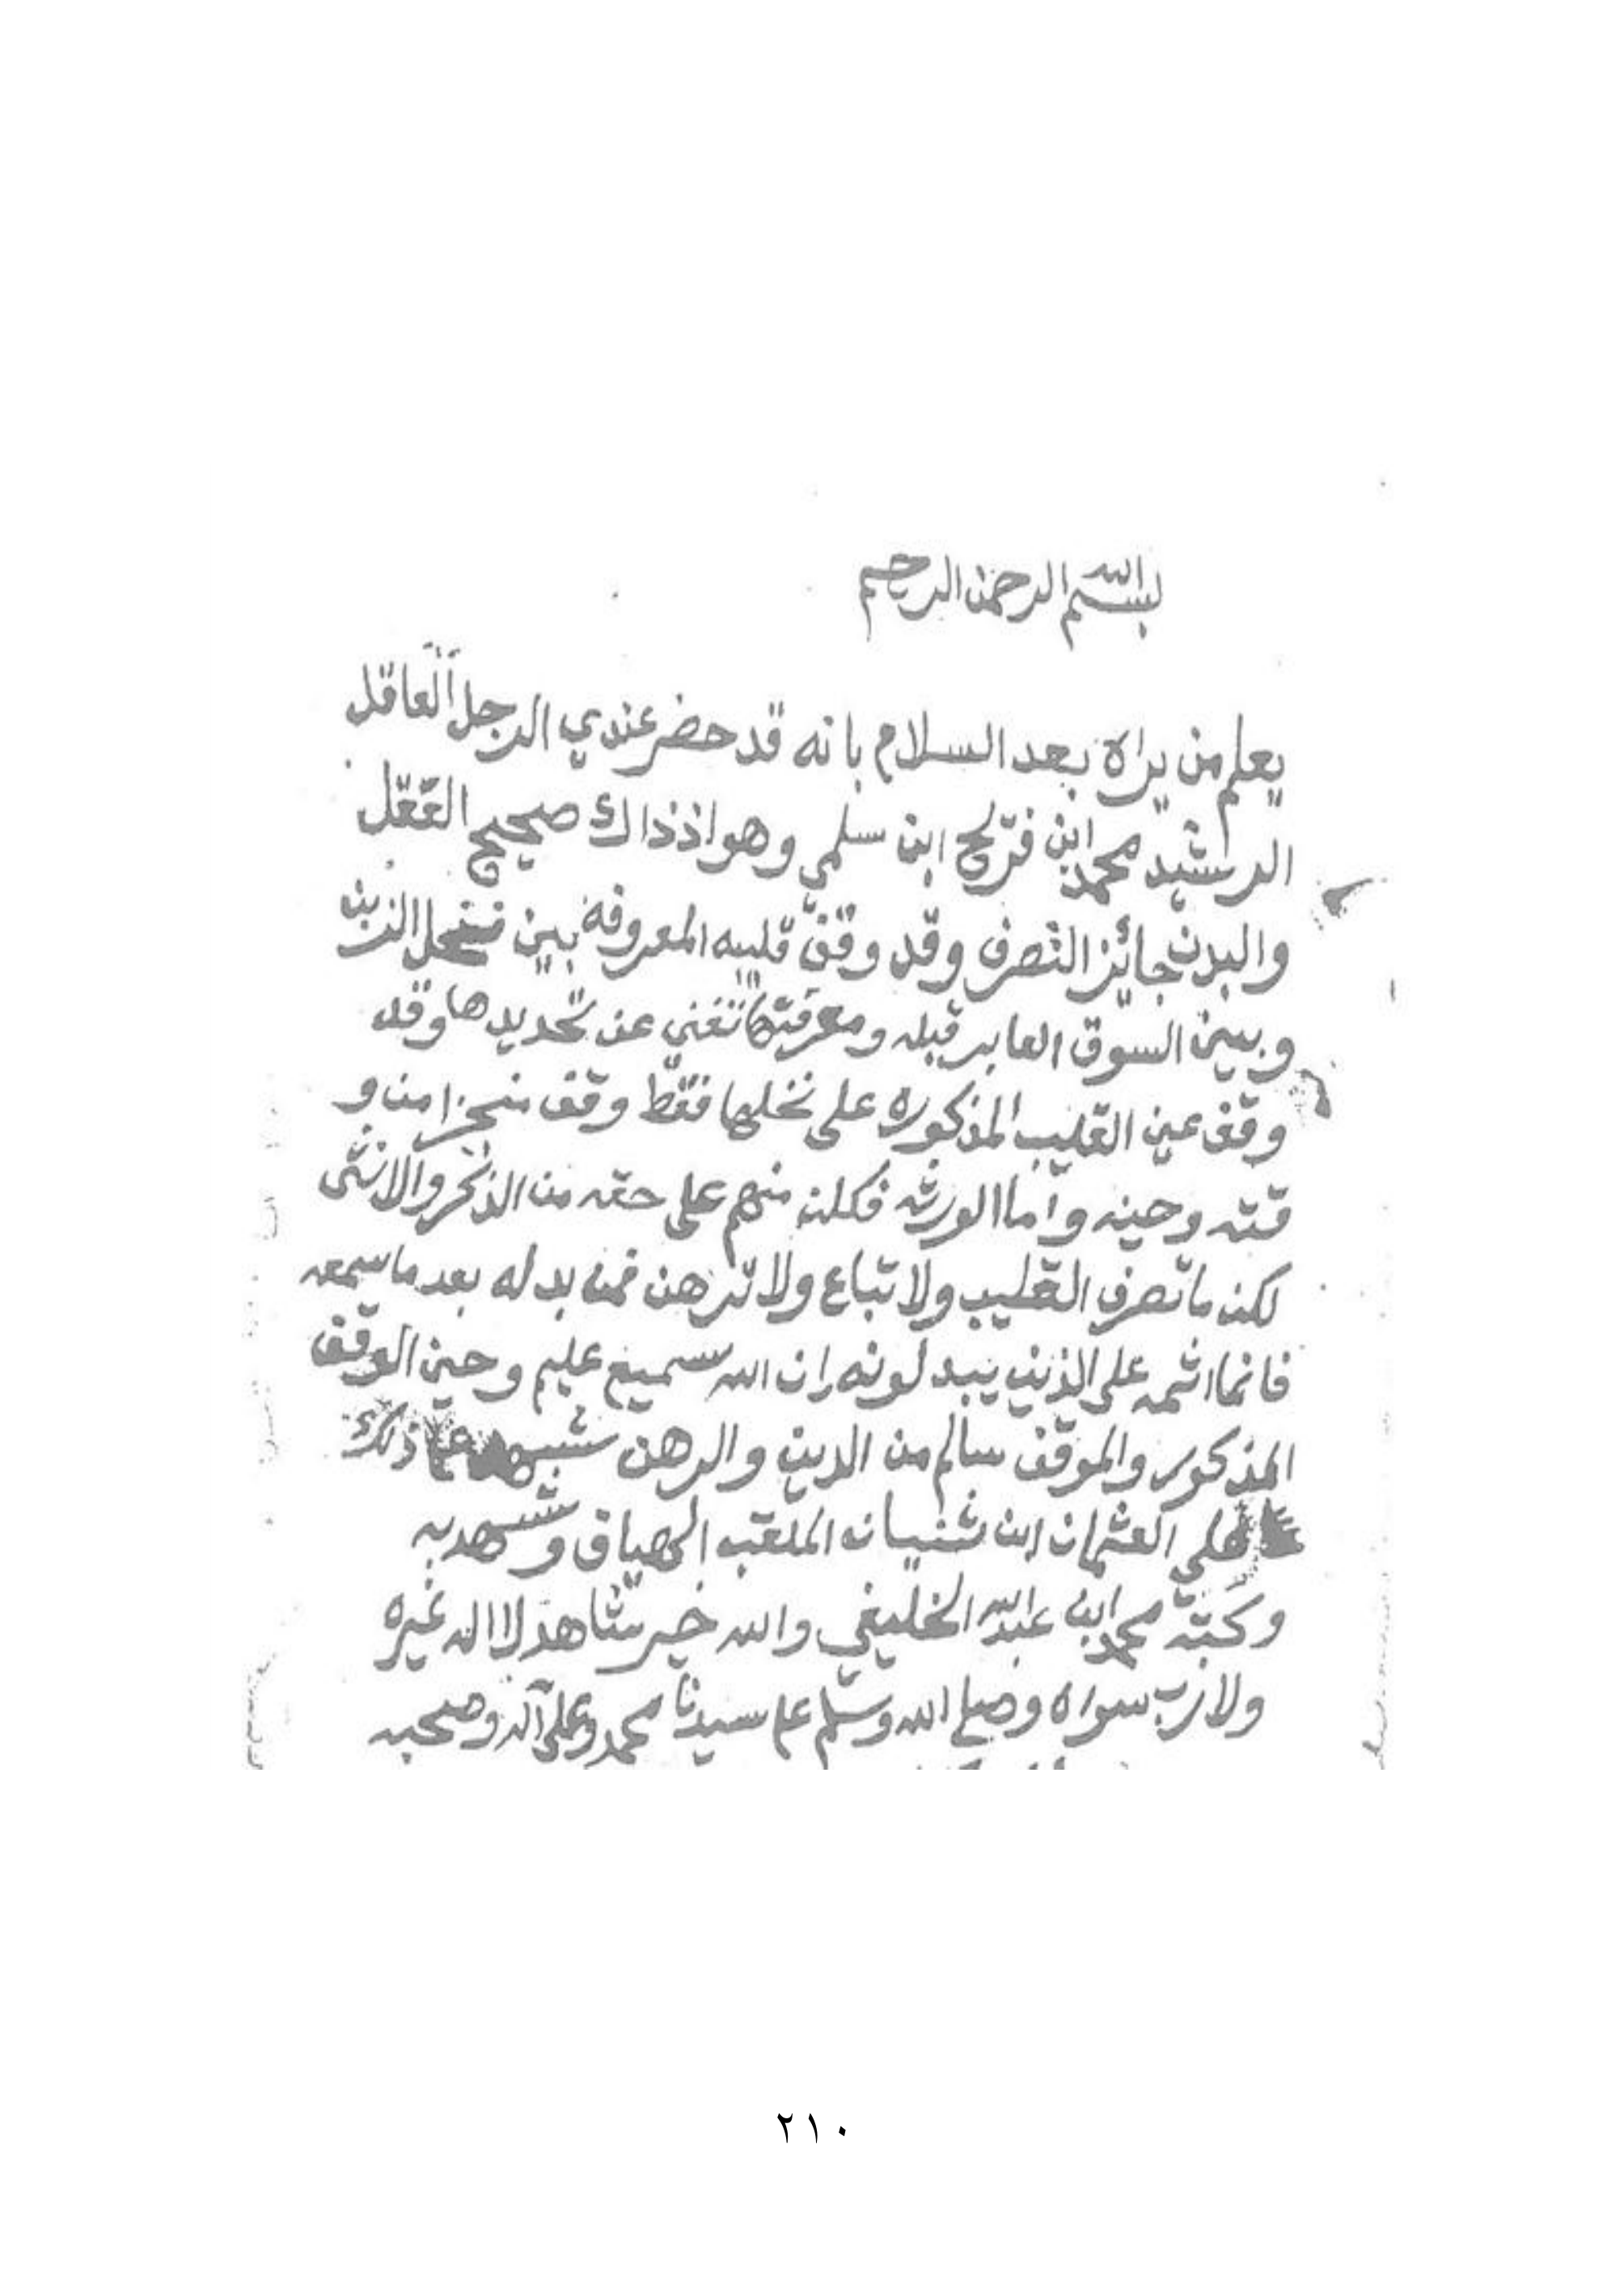 بسم الله الرحمن الرحيم
يعلم من يراه بعد السلام بانه قد حضر عندي الرجل العاقل
الرشيد محمد ابن فريح ابن سلمي وهو اذ ذاك صحيح العقل
والبدن جائز التصرف وقد وقف قليبه المعروفة بين نخل الزبن
وبين السوق العابر قبله ومعرفتها تغني عن تحديدها وقد
وقف عين القليب المذكوره على نخلها فقط وقف منجزا من و
قته وحينه واما الورثه فكلن منهم على حقه من الذكر والانثى
لكن ما تصرف القليب ولا تباع ولا ترهن فمن بدله بعد ما سمعه
فانما اثمه على الذين يبدلونه ان الله سميع عليم وحين الوقف
المذكور والموقف سالم من الدين والرهن شهد على ذالك
علي العثمان ابن شنيان الملقب الهياق وشهد به
وكتبه محمد ابن عبدالله الخليفي والله خير شاهد لا اله غيره
ولا رب سواه وصلى الله وسلم على سيدنا محمد وعلى آله وصحبه
٢١٠